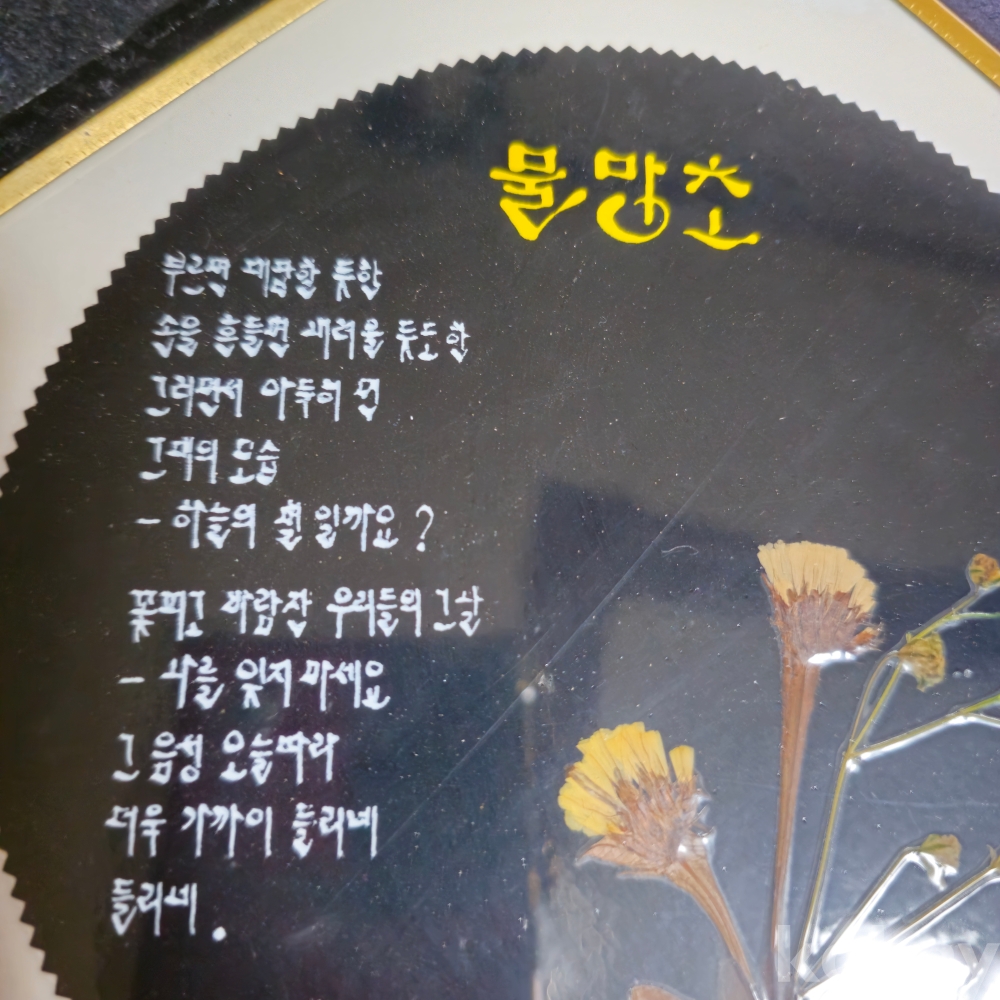 물망초
부르면 대답할 듯한
손을 흔들면 내려올 듯도 한
그러면서 아득히 먼
그대의 모습
- 하늘의 별 일까요?
꽃피고 바람잔 우리들의 그날
- 나를 잊지 마세요
그 음성 오늘따라
더욱 가까이 들리네
들리네.